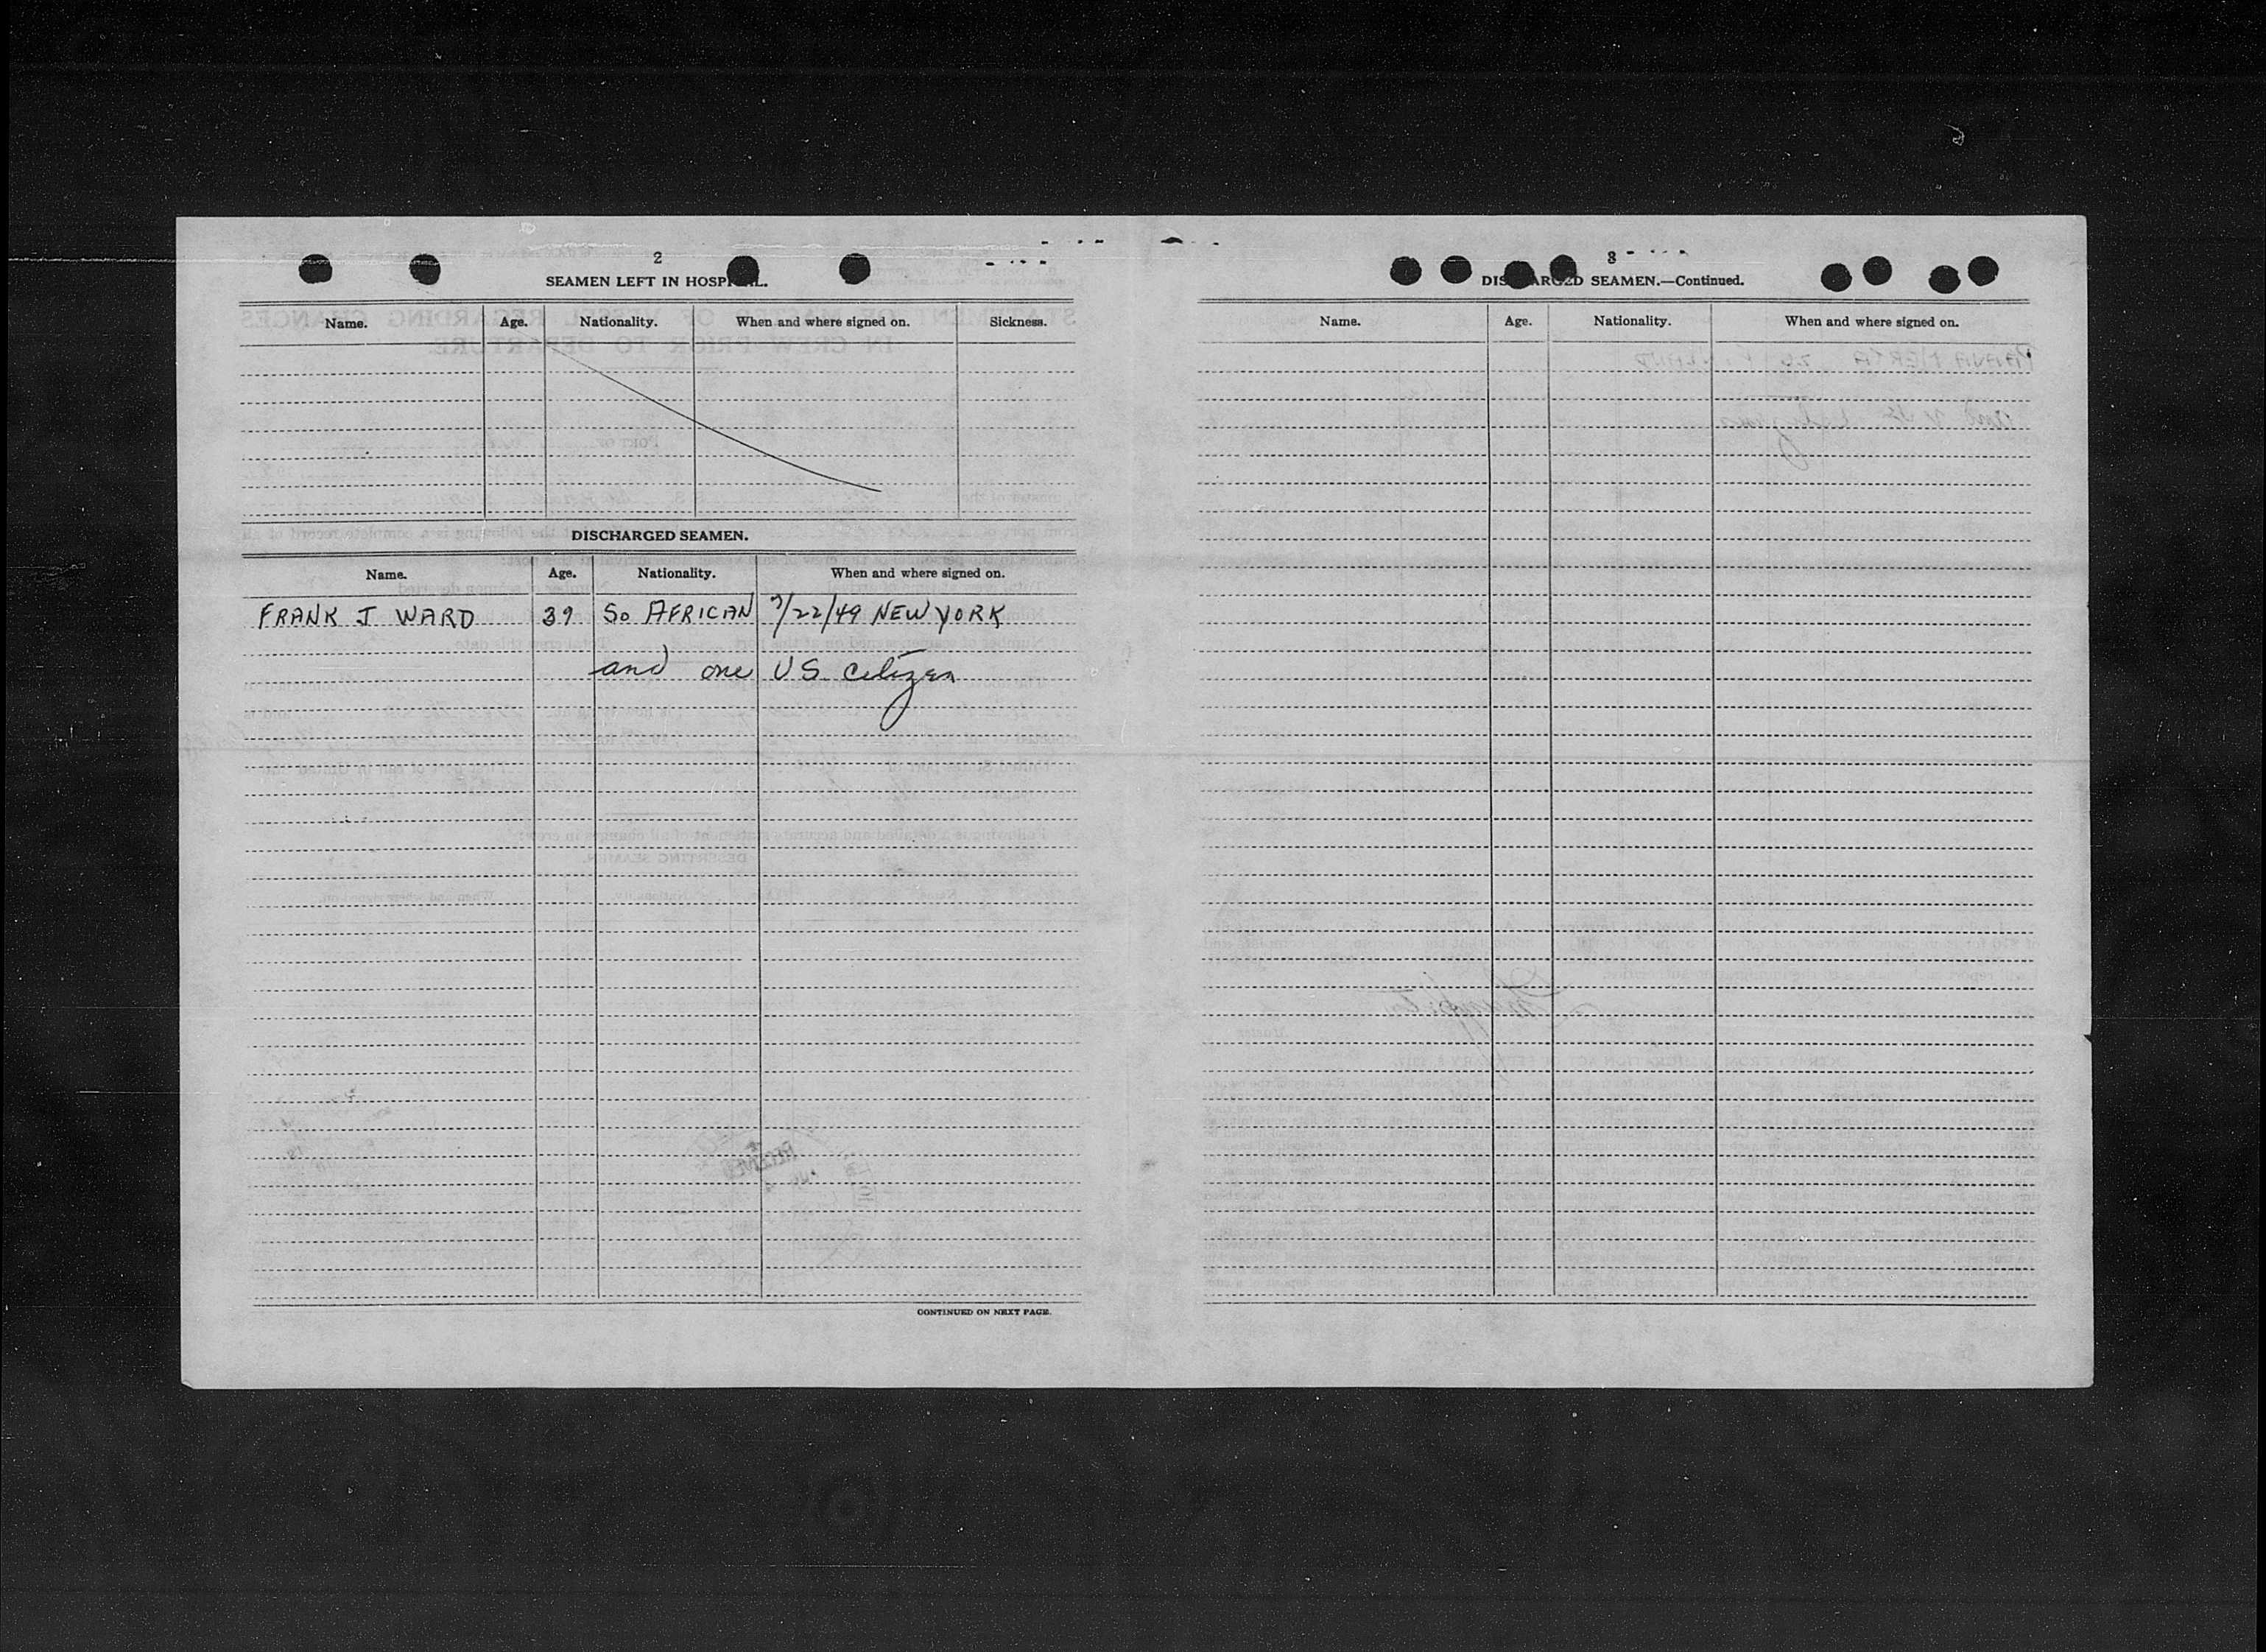 2
SEAMEN LEFT IN HOSPITAL.
Name. Age. Nationality. When and where signed on. Sickness.
DISCHARGED SEAMEN.
Name. Age. Nationality. When and where signed on.
FRANK J WARD 39 SO AFRICAN 7/22/49 NEW YORK
and one US citizen
CONTINUED ON NEXT PAGE.
3
DISCHARGED SEAMEN.—Continued.
Name. Age. Nationality. When and where signed on.